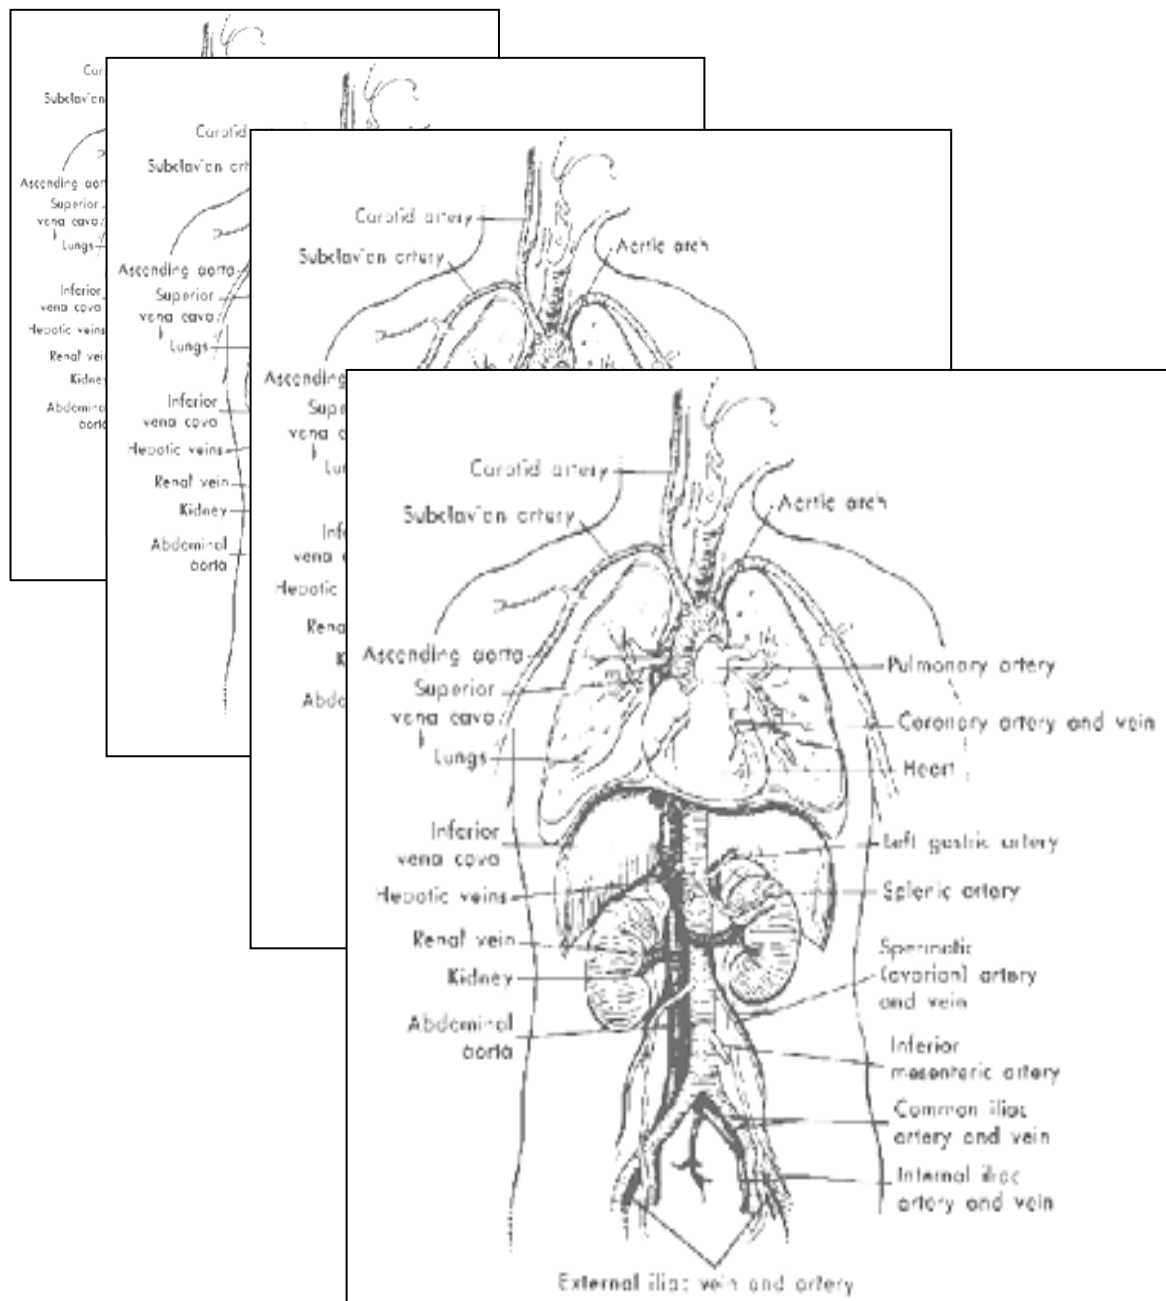 Car
Subclavian
Ascending aor
Superior
vena cava
Lungs
Inferior
vena cava
Hepatic veins
Renal vei
Kidne
Abdomina
aorta
Carotid
Subclavian art
Ascending aorta
Superior
vena cava
Lungs
Inferior
vena cava
Hepatic veins
Renal vein
Kidney
Abdominal
aorta
Carotid artery
Subclavian artery
Aortic arch
Ascending
Supe
vena c
Lun
Infe
vena c
Hepatic
Rena
K
Abdo
Carotid artery
Subclavian artery
Aortic arch
Ascending aorta
Superior
vena cava
Lungs
Inferior
vena cava
Hepatic veins
Renal vein
Kidney
Abdominal
aorta
Pulmonary artery
Coronary artery and vein
Heart
Left gastric artery
Splenic artery
Spermatic
(ovarian) artery
and vein
Inferior
mesenteric artery
Common iliac
artery and vein
Internal iliac
artery and vein
External iliac vein and artery